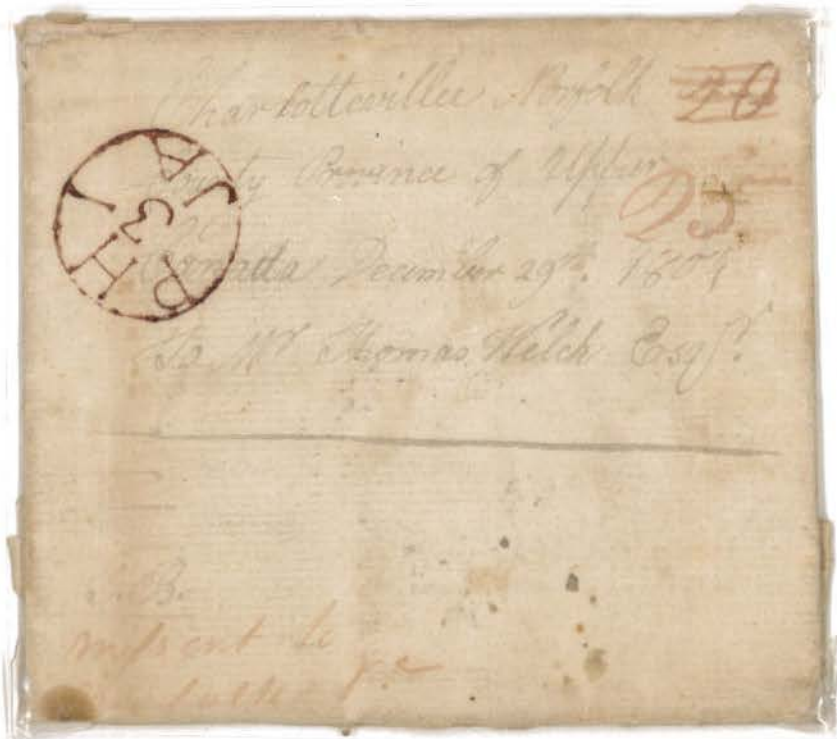 Charlotteville Norfolk 20
County Province of Upper
25
Canada December 29th. 1804
To Mr Thomas Welch Esqr.
JA
3
PHI
missent to